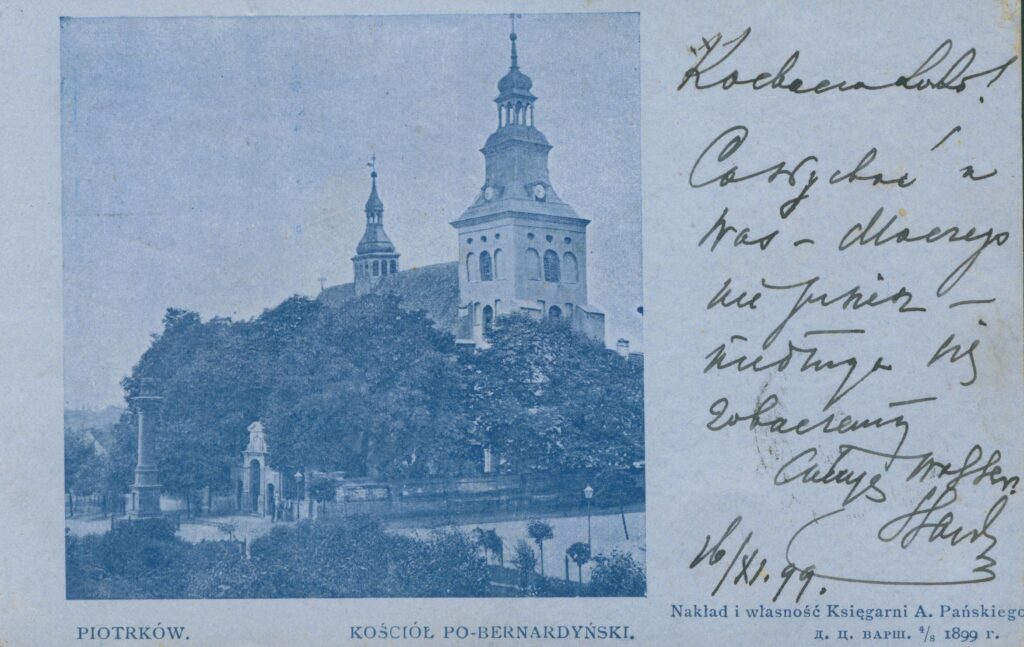 Kochana Lolu!
Co słychać u
Was – dlaczego
nie piszesz –
niedługo się
zobaczemy
Całuję
16/XI.99.
PIOTRKÓW.
KOŚCIÓŁ PO-BERNARDYŃSKI.
Nakład i własność Księgarni A. Pańskiego
Д. Ц. ВАРШ. 4/8 1899 г.